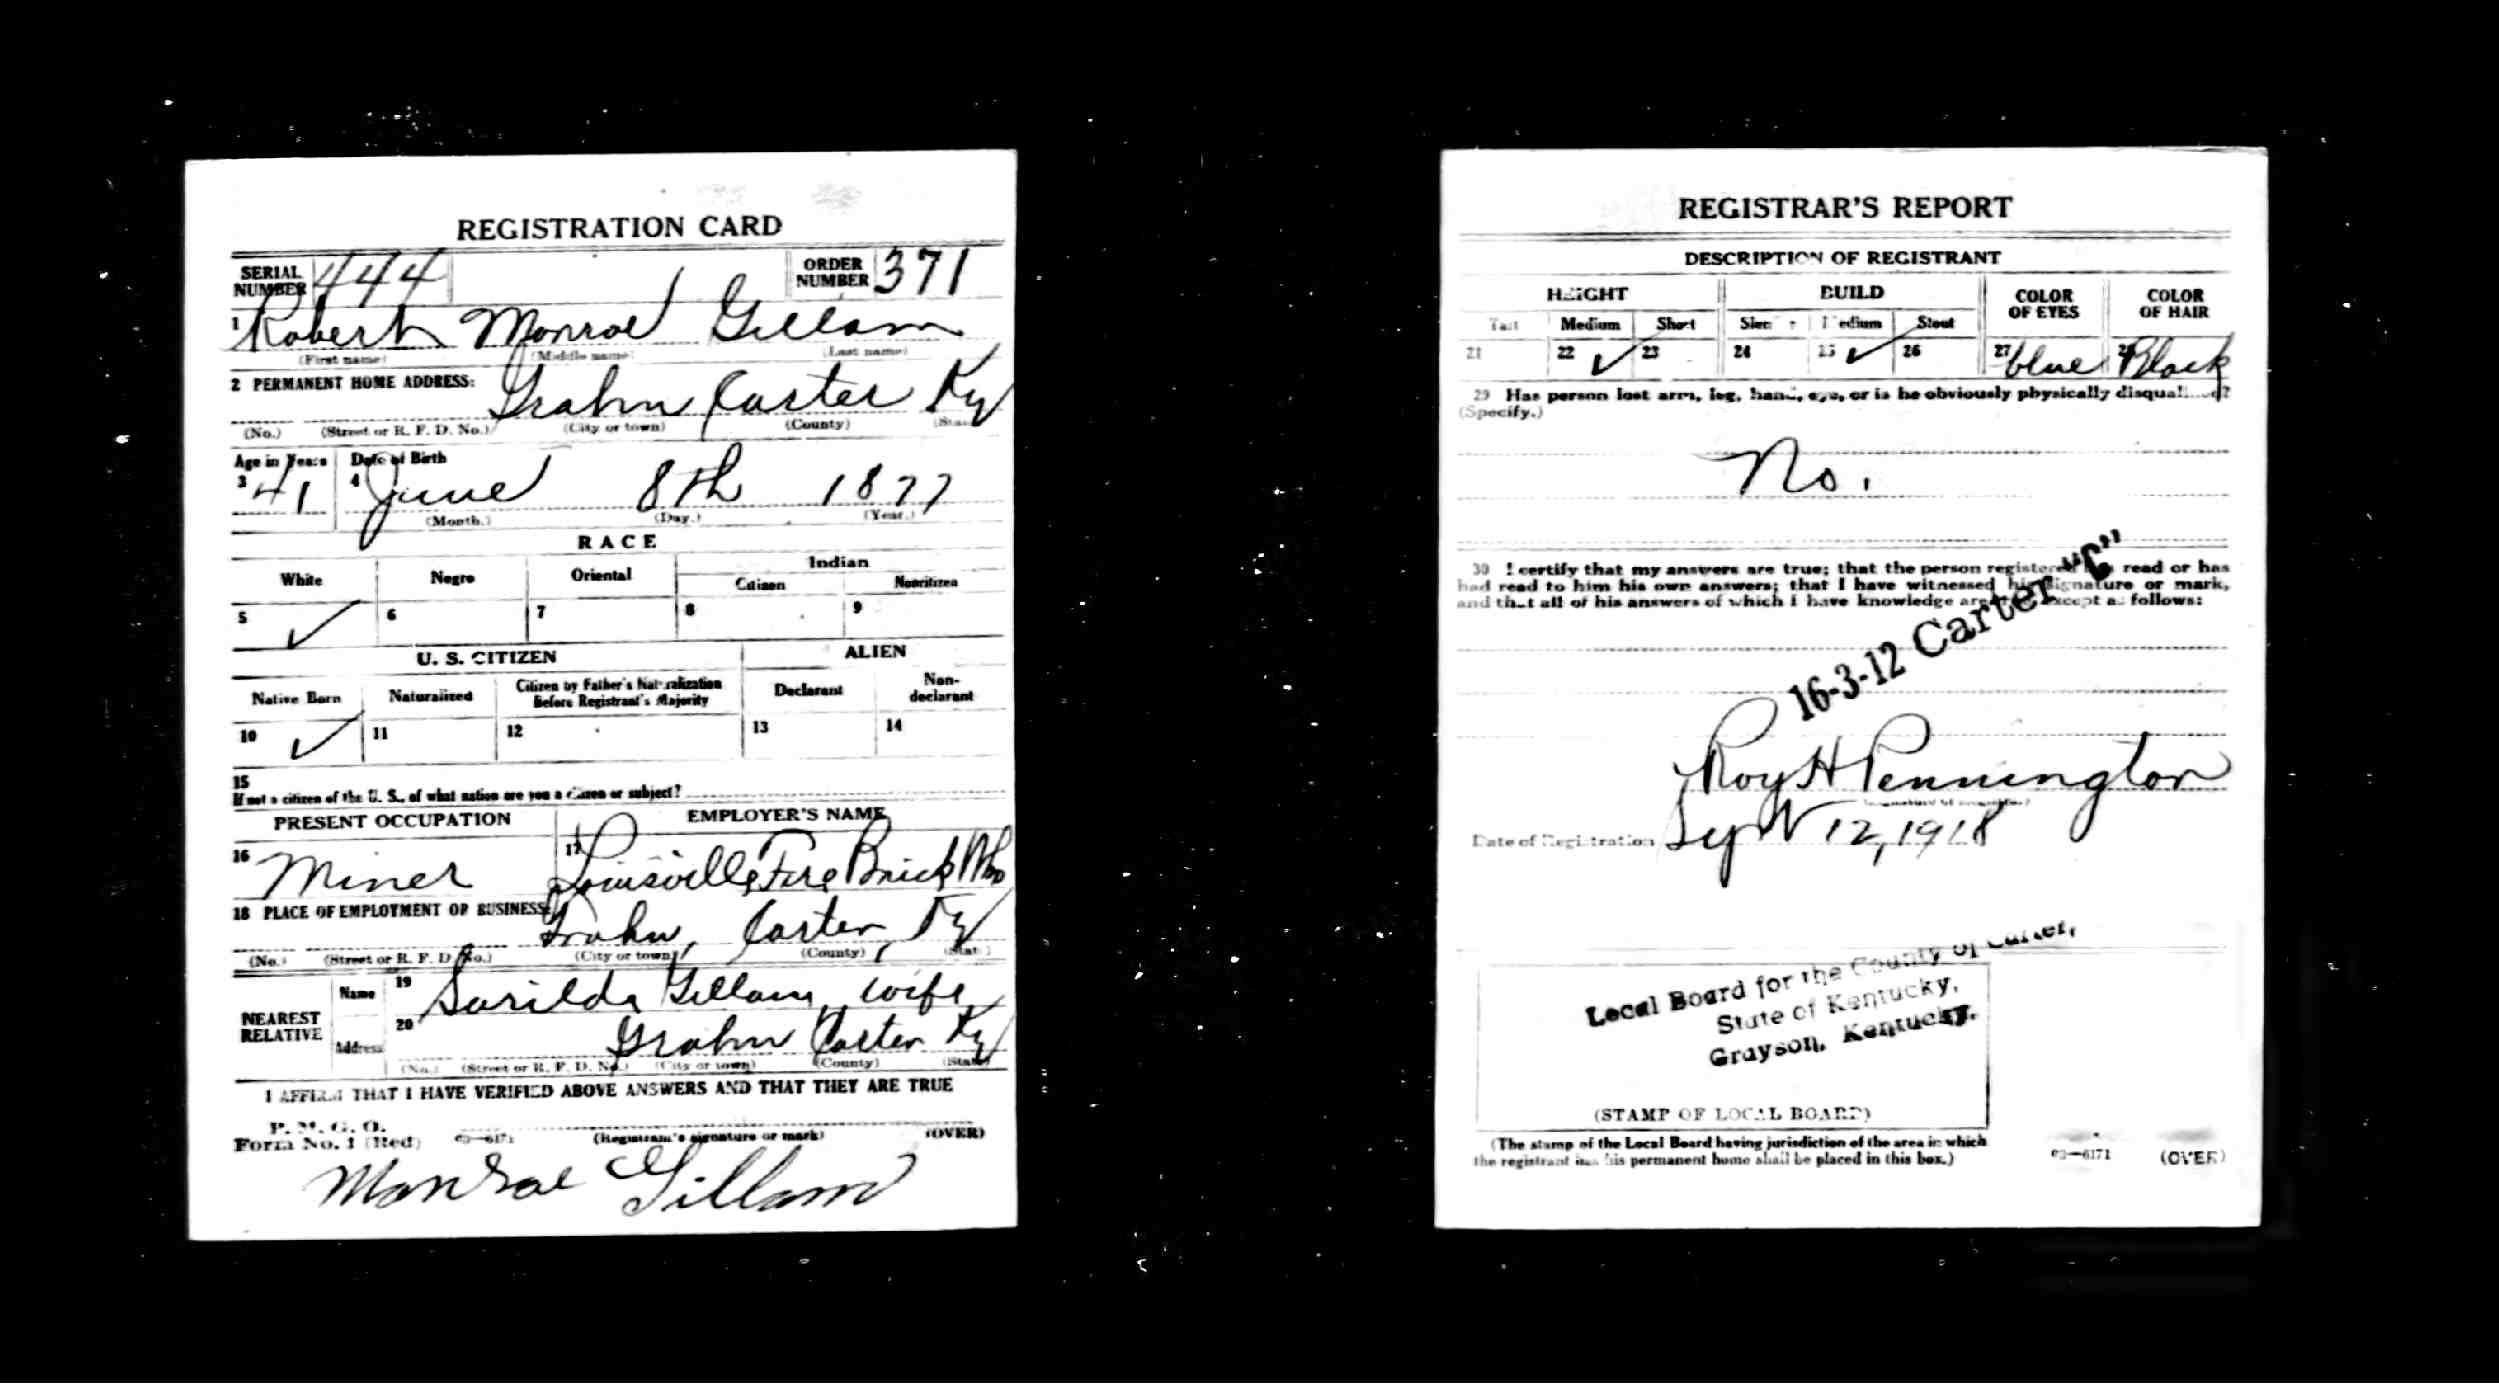 REGISTRATION CARD
SERIAL NUMBER 444 ORDER NUMBER 371
1 Robert Monroe Gillam
(First name) (Middle name) (Last name)
2 PERMANENT HOME ADDRESS: Grahn Carter Ky
(No.) (Street or R. F. D. No.) (City or town) (County) (State)
Age in Years Date of Birth
3 41 4 June 8th 1877
(Month.) (Day.) (Year.)
RACE
White Negro Oriental Indian
Citizen Noncitizen
5 ✓ 6 7 8 9
U. S. CITIZEN ALIEN
Native Born Naturalized Citizen by Father's Naturalization Before Registrant's Majority Declarant Non-declarant
10 ✓ 11 12 13 14
15
If not a citizen of the U. S., of what nation are you a citizen or subject?
PRESENT OCCUPATION EMPLOYER'S NAME
16 Miner 17 Louisville Fire Brick
18 PLACE OF EMPLOYMENT OR BUSINESS:
Grahn, Carter, Ky
(No.) (Street or R. F. D. No.) (City or town) (County) (State)
NEAREST RELATIVE Name 19 Sarilda Gillam, wife
Address 20 Grahn Carter Ky
(No.) (Street or R. F. D. No.) (City or town) (County) (State)
I AFFIRM THAT I HAVE VERIFIED ABOVE ANSWERS AND THAT THEY ARE TRUE
P. M. G. O.
Form No. 1 (Red) 03—6171 (Registrant's signature or mark) (OVER)
Monroe Gillam
REGISTRAR'S REPORT
DESCRIPTION OF REGISTRANT
HEIGHT BUILD COLOR OF EYES COLOR OF HAIR
Tall Medium Short Slender Medium Stout
21 22 ✓ 23 24 25 ✓ 26 27 blue 28 Black
29 Has person lost arm, leg, hand, eye, or is he obviously physically disqualified?
(Specify.)
No.
30 I certify that my answers are true; that the person registered has read or has
had read to him his own answers; that I have witnessed his signature or mark,
and that all of his answers of which I have knowledge are true, except as follows:
16-3-12 Carter "C"
Roy H Pennington
(Signature of Registrar)
Date of Registration Sept 12, 1918
Local Board for the County of Carter,
State of Kentucky,
Grayson, Kentucky.
(STAMP OF LOCAL BOARD)
(The stamp of the Local Board having jurisdiction of the area in which
the registrant has his permanent home shall be placed in this box.)
03—6171 (OVER)